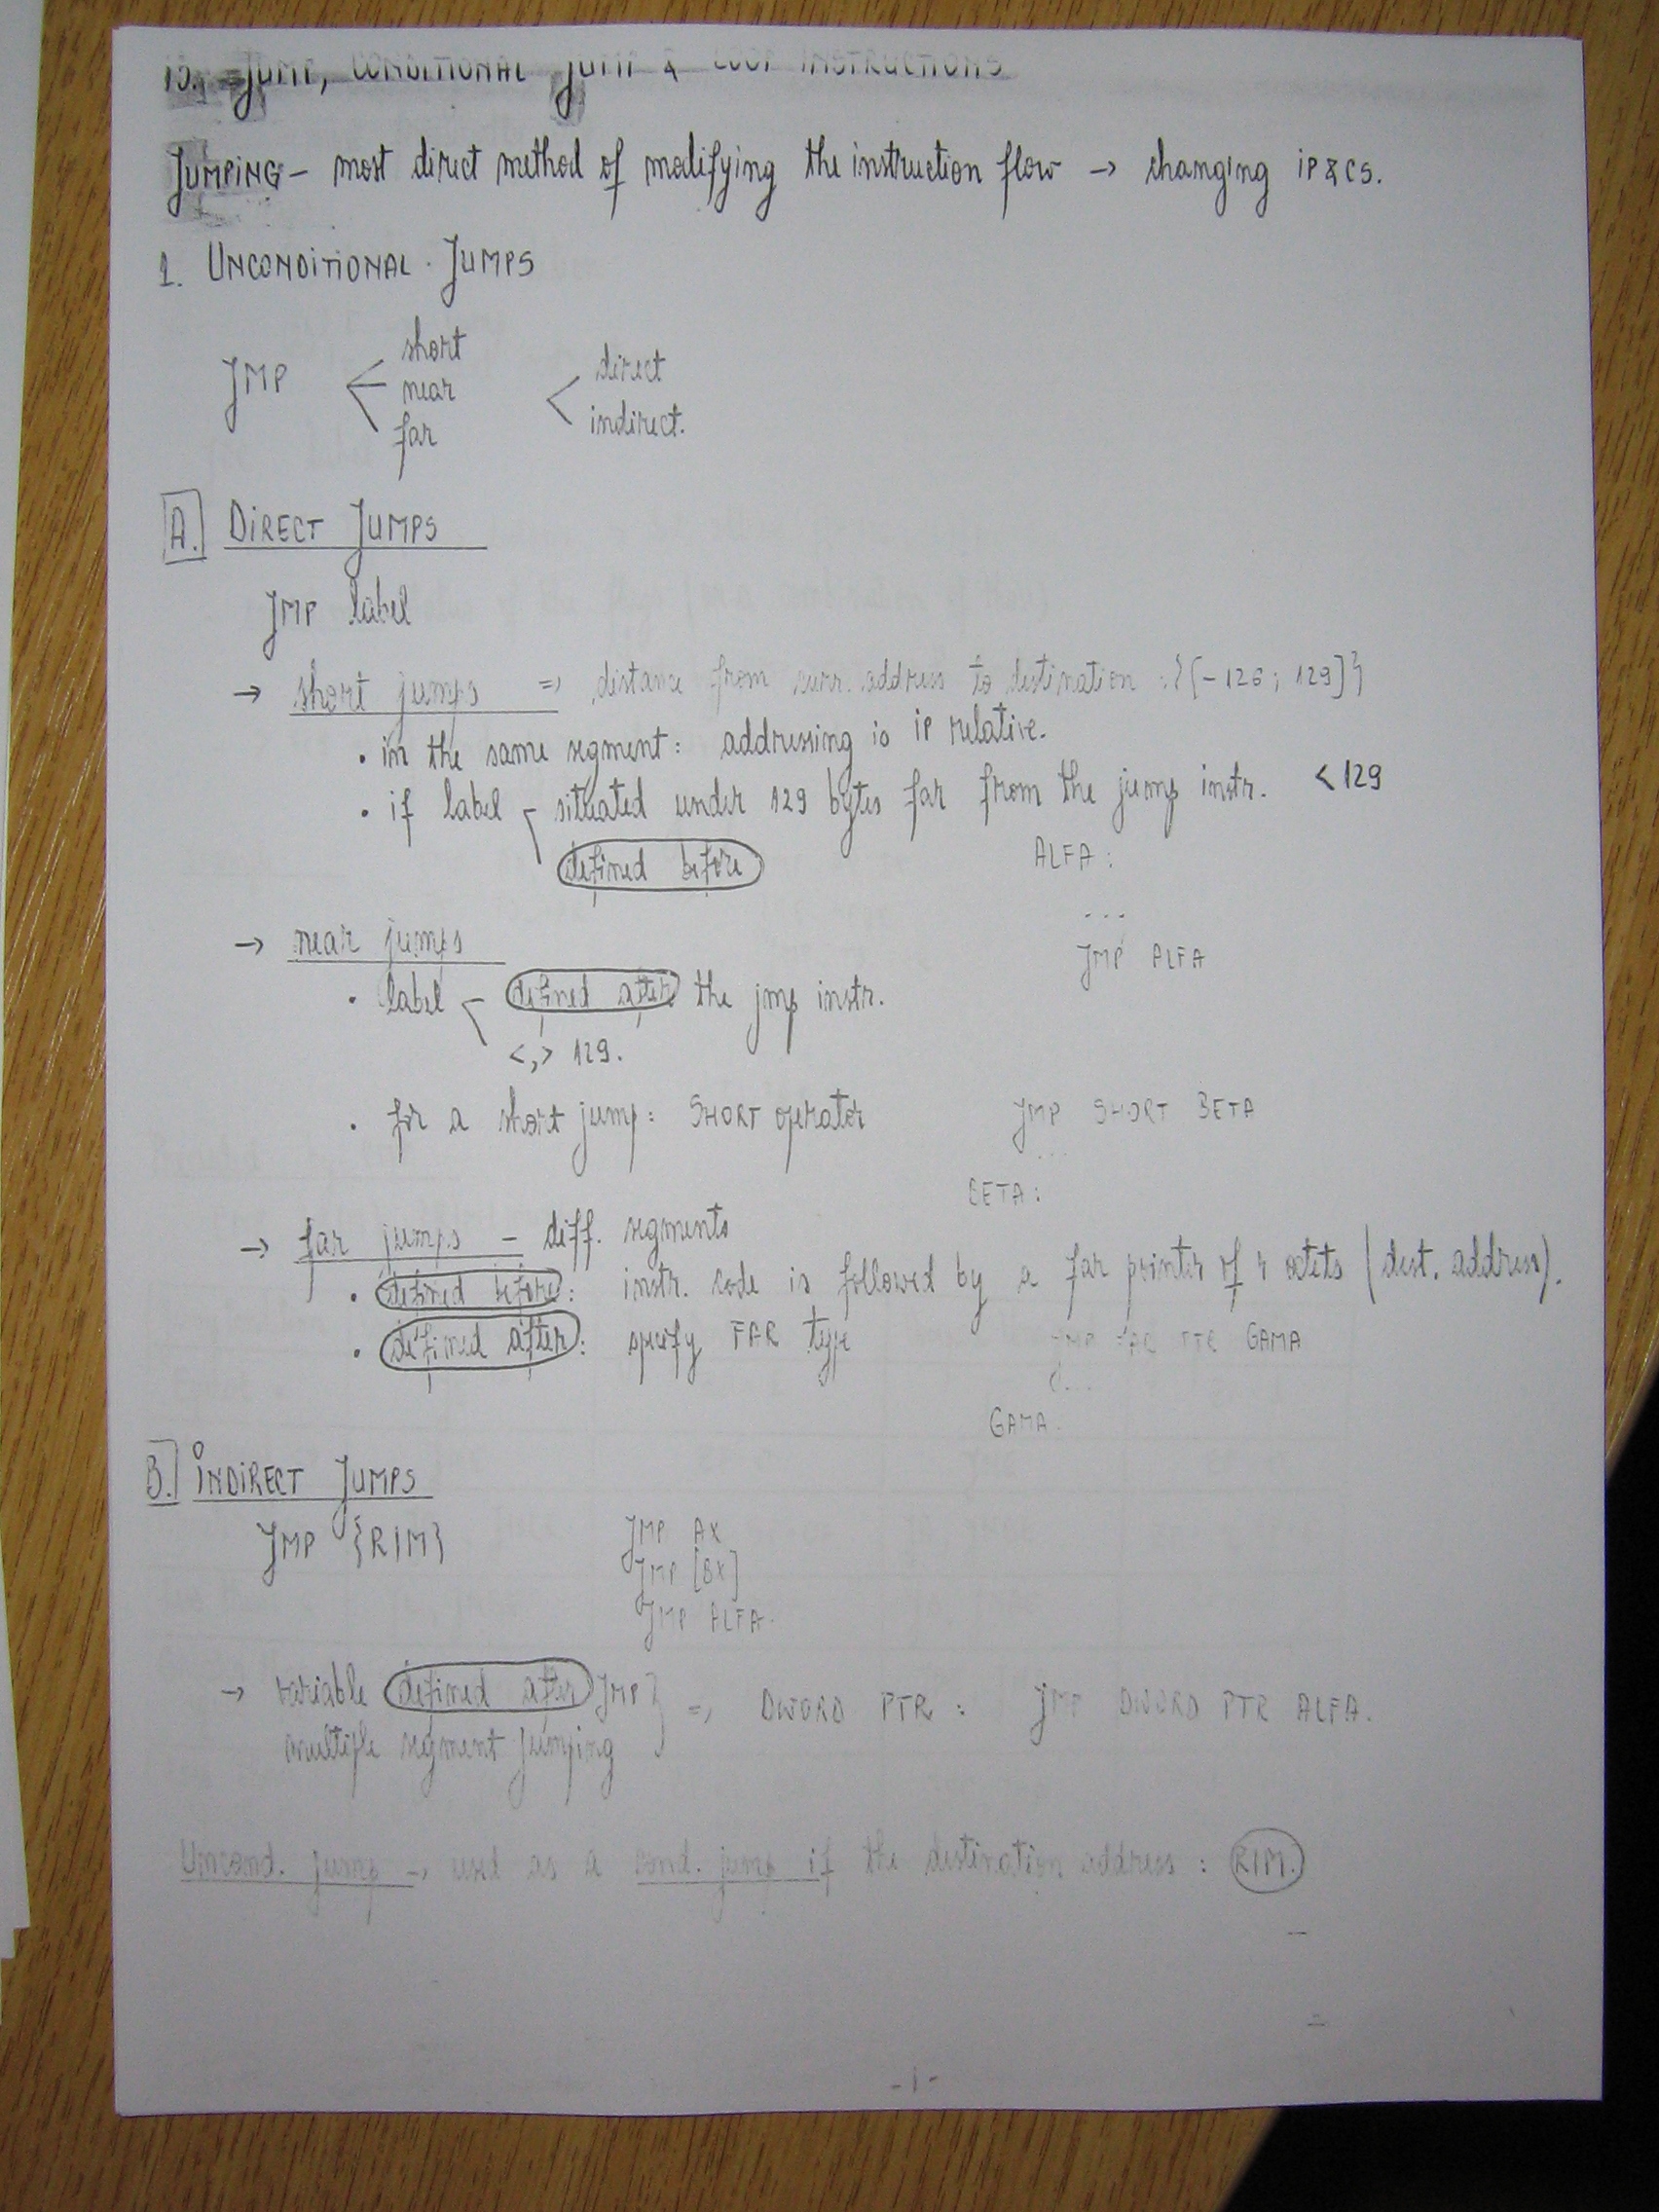 13. JUMP, CONDITIONAL JUMP & LOOP INSTRUCTIONS
JUMPING – most direct method of modifying the instruction flow → changing IP & CS.
1. UNCONDITIONAL JUMPS
JMP < short near far < direct indirect.
A. DIRECT JUMPS
JMP label
→ short jumps => distance from curr. address to destination : {[-126 ; 129]}
• in the same segment: addressing is IP relative.
• if label situated under 129 bytes far from the jump instr. < 129
defined before ALFA :
...
→ near jumps JMP ALFA
• label defined after the jmp instr.
<,> 129.
• for a short jump: SHORT operator JMP SHORT BETA
...
BETA :
→ far jumps – diff. segments
• defined before: instr. code is followed by a far pointer of 4 octets (dest. address).
• defined after: specify FAR type JMP FAR PTR GAMA
...
GAMA
B. INDIRECT JUMPS
JMP {R/M} JMP AX
JMP [BX]
JMP ALFA.
→ variable defined after JMP } => DWORD PTR : JMP DWORD PTR ALFA.
multiple segment jumping
Uncond. jump → used as a cond. jump if the destination address : R/M.
-1-